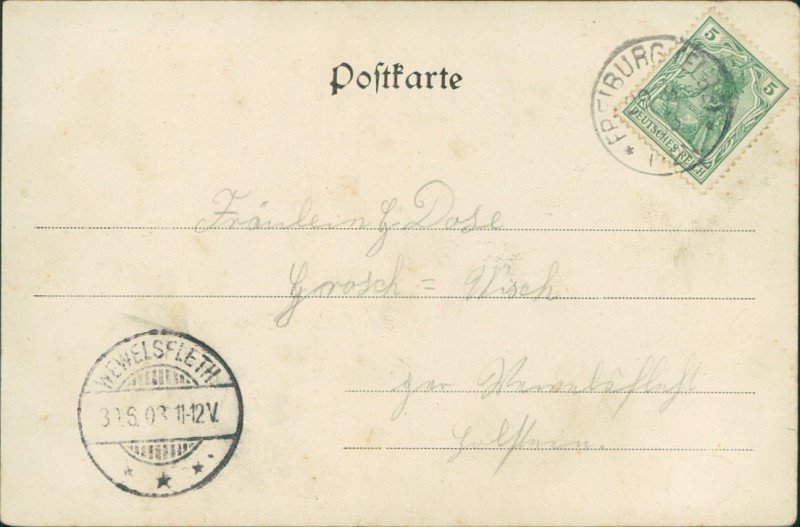 Postkarte
FREIBURG
5 5
DEUTSCHES REICH
Fräulein G Dose
Grosch = Wisch
per Wewelsfleht
Holstein.
WEWELSFLETH
30.6.03.11-12V.